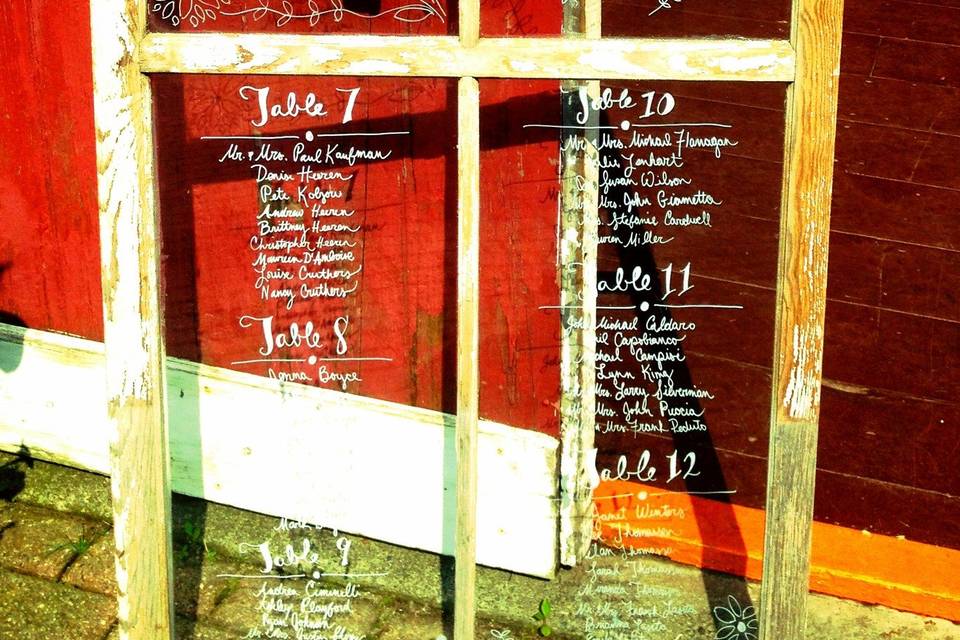 Table 7
Mr. & Mrs. Paul Kaufman
Denise Heeren
Pete Kobzow
Andrew Heeren
Brittney Heeren
Christopher Heeren
Maureen D'Amboise
Louise Cruthers
Nancy Cruthers
Table 8
Jenna Boyce
Mark
Table 9
Andrea Ciminelli
Ashley Playford
Ryan Johnson
Table 10
Mr. & Mrs. Michael Flanagan
Lenhart
Susan Wilson
Mrs. John Giametta
Stefanie Cardwell
Lauren Miller
Table 11
John Michael Caldaro
Capobianco
Michael Campisi
Lynn King
Mrs. Larry Silverman
Mrs. John Puccia
Mrs. Frank Peduto
Table 12
Janet Wentors
Thomason
Alan Thomason
Sarah Thomason
Miranda Thomason
Mr. & Mrs. Frank
Brianna